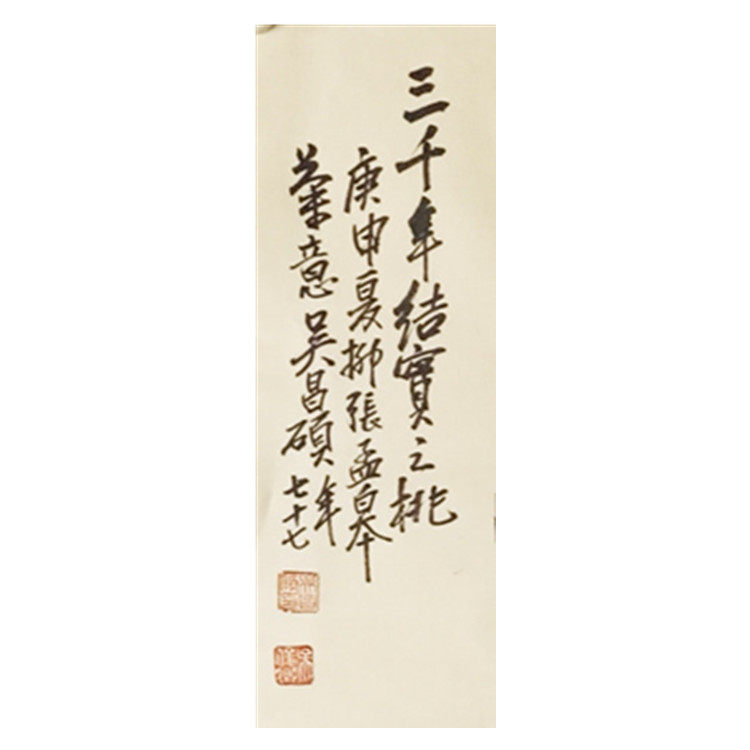 三千年結實之桃
庚申夏擬張孟皋
筆意吳昌碩年
七十七